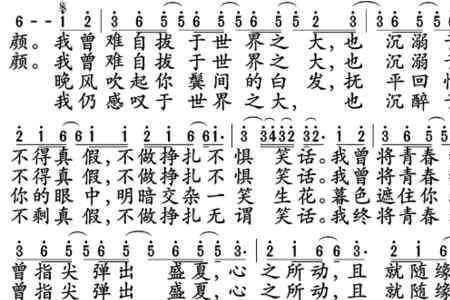 6 - - 1 2 3 6 5 5 6 6 5 5 2 3 3 6 5 5
颜。我曾难自拔于世界之大,也 沉溺
颜。我曾难自拔于世界之大,也 沉溺
晚风吹起你鬓间的白发,抚 平回
我仍感叹于世界之大, 也 沉醉
2 1 6 6 1 2 1 2 1 6 61· 3 3432 32· 1 2 3 6 5 5
不得真假,不做挣扎不惧 笑话。我曾将青春
不得真假,不做挣扎不惧 笑话。我曾将青春
你的眼中,明暗交杂一笑 生花。暮色遮住你
不剩真假,不做挣扎无谓 笑话。我终将青春
3 6 5 5 6 5 6 5 5 3· 2 1 2 1 6 3· 3 2 1 6
曾指尖弹出 盛夏,心之所动,且 就随缘
曾指尖弹出 盛夏,心之所动,且 就随缘